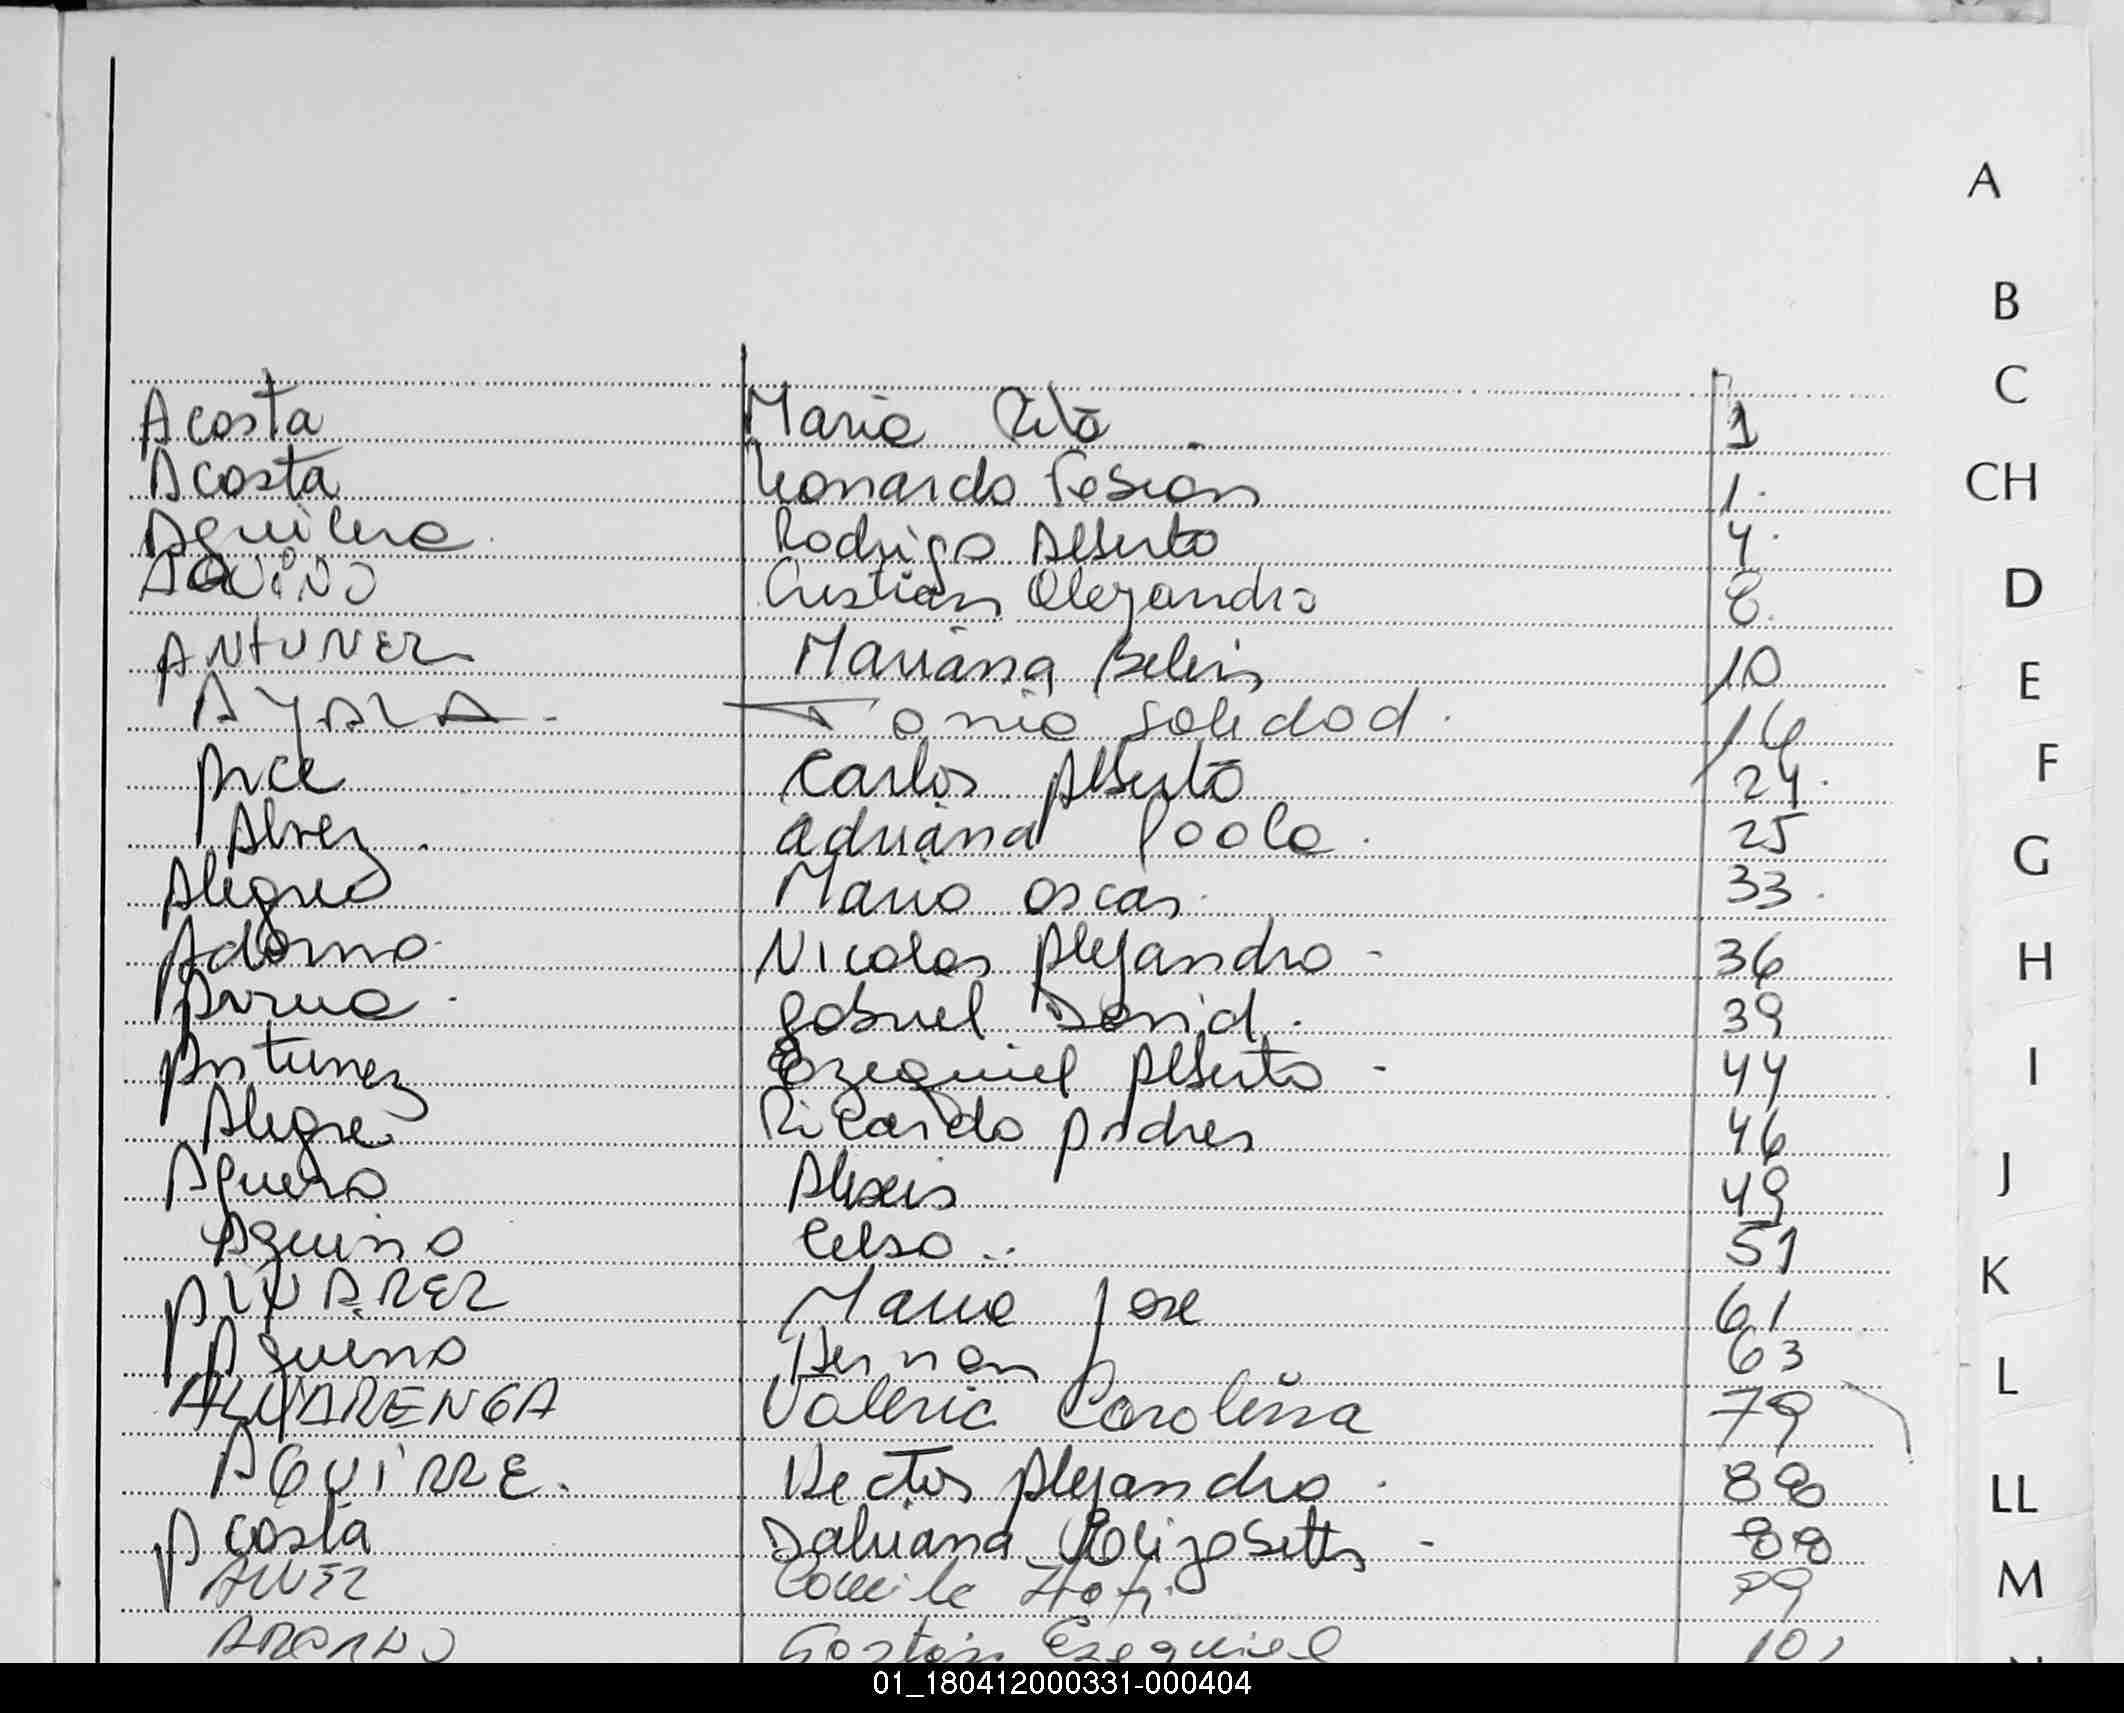 A
B
C
Acosta Maria Rita 1
CH
Acosta Leonardo Fabian 1.
Aguilera Rodrigo Alberto 4.
D
AQUINO Cristian Alejandro 8.
ANTUNEZ Mariana Belen 10
E
AYALA Tania Soledad. 16
F
Arce Carlos Alberto 24.
Alvez. Adriana Paola. 25
G
Alegre Mario Oscar. 33.
H
Adorno Nicolas Alejandro - 36
Gabriel David. 39
I
Antunez Ezequiel Alberto - 44
Alegre Ricardo Andres 46
J
Aguero Alexis 49
Aquino Celso.. 51
K
ALVAREZ Maria Jose 61
Aguero Hernan 63
L
ALVARENGA Valeria Carolina 79
AGUIRRE. Hector Alejandro. 88
LL
Acosta Daluana Elizabeth - 88
M
ALVEZ Camila
Gaston Ezequiel
01_180412000331-000404